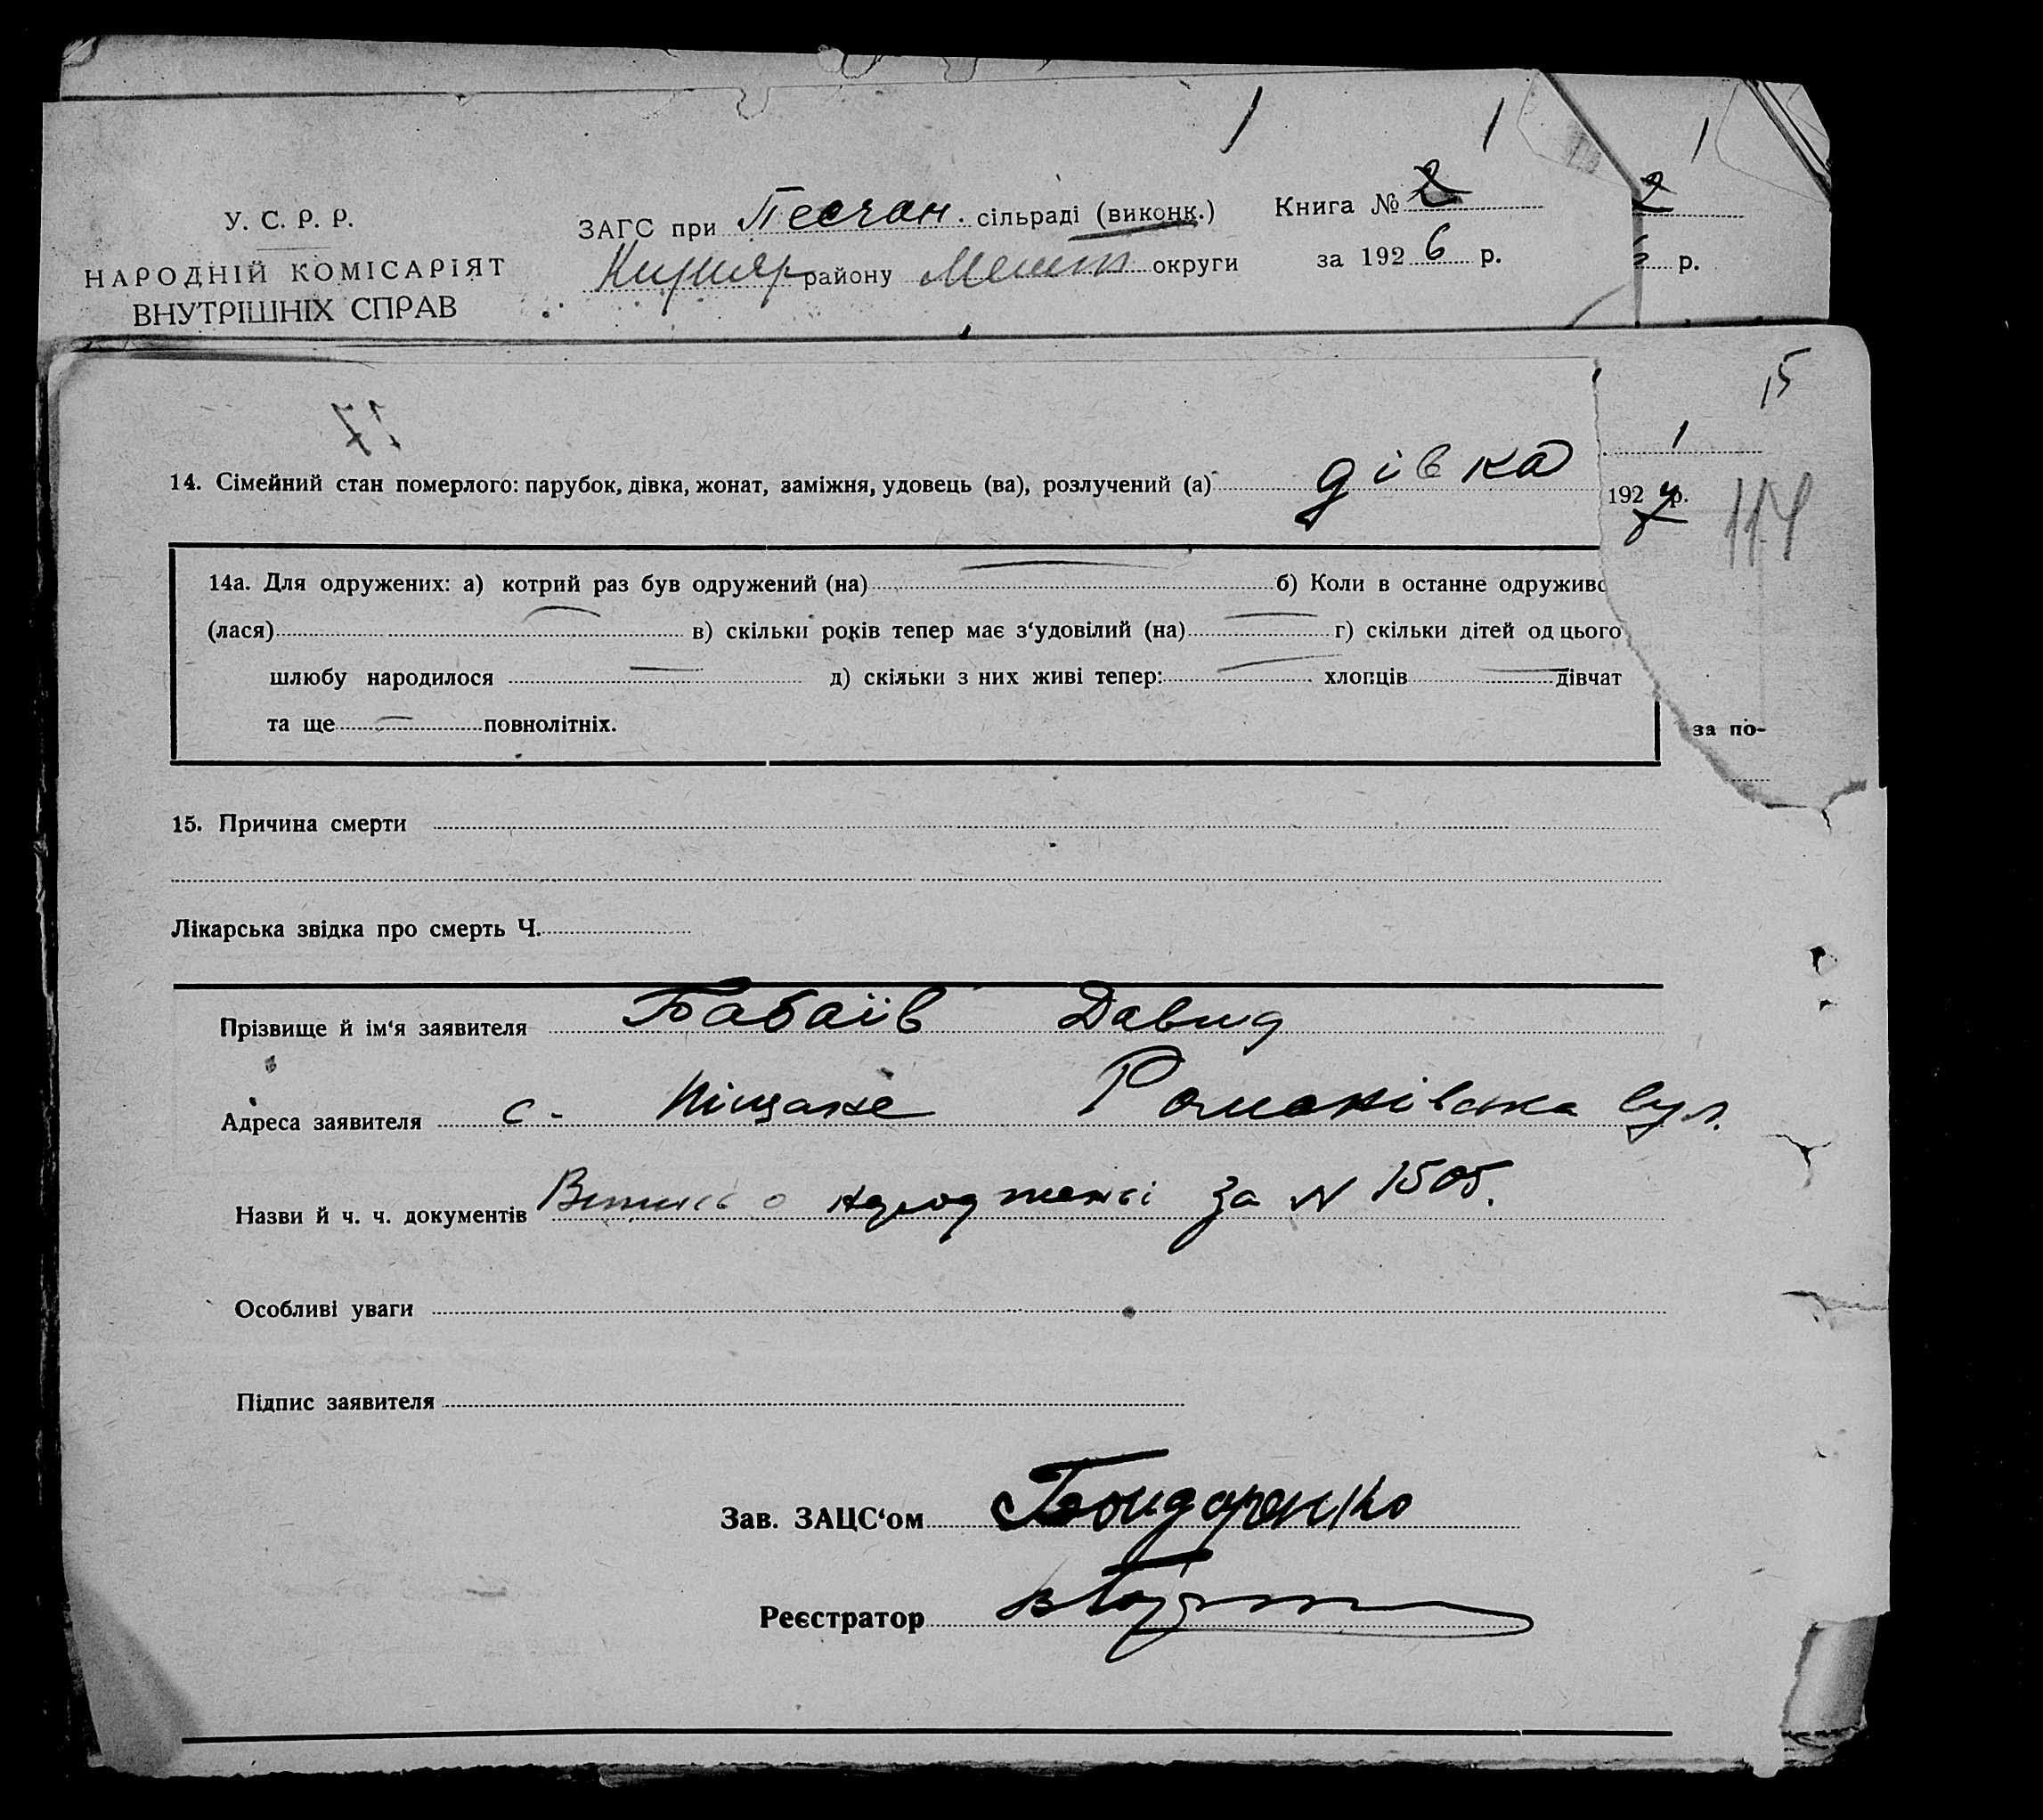 1 1 1
У. С. Р. Р.
НАРОДНІЙ КОМІСАРІЯТ
ВНУТРІШНІХ СПРАВ
ЗАГС при Песчан. сільраді (виконк.)
району Меліт округи
Книга № 2
за 1926 р.
2
6 р.
15
17
1
14. Сімейний стан померлого: парубок, дівка, жонат, заміжня, удовець (ва), розлучений (а) дівка
192 р.
114
14а. Для одружених: а) котрий раз був одружений (на) б) Коли в останне одруживс
(лася) в) скільки років тепер має з‘удовілий (на) г) скільки дітей од цього
шлюбу народилося д) скільки з них живі тепер: хлопців дівчат
та ще повнолітніх.
за по-
15. Причина смерти
Лікарська звідка про смерть Ч.
Прізвище й ім‘я заявителя Бабаїв Давид
Адреса заявителя с. Піщане Романівська вул.
Назви й ч. ч. документів Випись о народженні за N 1505.
Особливі уваги
Підпис заявителя
Зав. ЗАЦС‘ом Бондаренко
Реєстратор